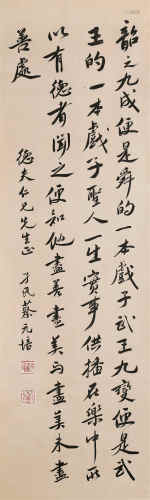 韶之九成便是舜的一本戲子武王九變便是武
王的一本戲子聖人一生實事俱播在樂中所
以有德者聞之便知他盡善盡美与盡美未盡
善處
德夫仁兄先生正
孑民蔡元培